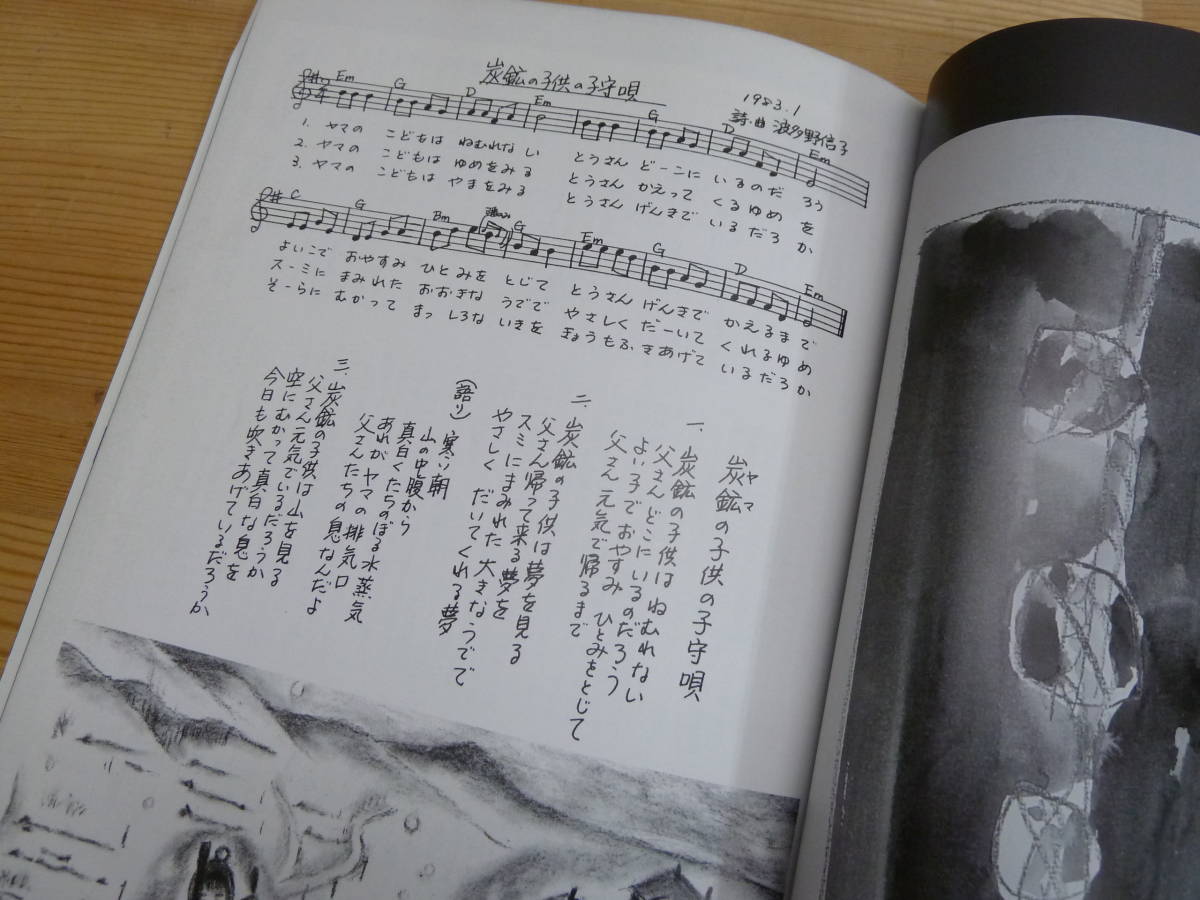 炭鉱の子供の子守唄
1983.1
詩・曲 波多野信子
Em G D Em G D Em
1. ヤマの こどもは ねむれな い とうさん どーこに いるのだ ろう
2. ヤマの こどもは ゆめをみ る とうさん かえって くるゆめ を
3. ヤマの こどもは やまをみ る とうさん げんきで いるだろ か
C G Bm G Em G D Em
よいこで おやすみ ひとみを とじて とうさん げんきで かえるまで
スーミに まみれた おおきな うでで やさしく だーいて くれるゆめ
そーらに むかって まっしろな いきを きょうもふ きあげて いるだろか
炭鉱の子供の子守唄
ヤマ
一、炭鉱の子供はねむれない
父さんどこにいるのだろう
よい子でおやすみ ひとみをとじて
父さん元気で帰るまで
二、炭鉱の子供は夢を見る
父さん帰って来る夢を
スミにまみれた大きなうでで
やさしく だいてくれる夢
(語り) 寒い朝
山の中腹から
真白くたちのぼる水蒸気
あれがヤマの排気口
父さんたちの息なんだよ
三、炭鉱の子供は山を見る
父さん元気でいるだろうか
空にむかって真白な息を
今日も吹きあげているだろうか